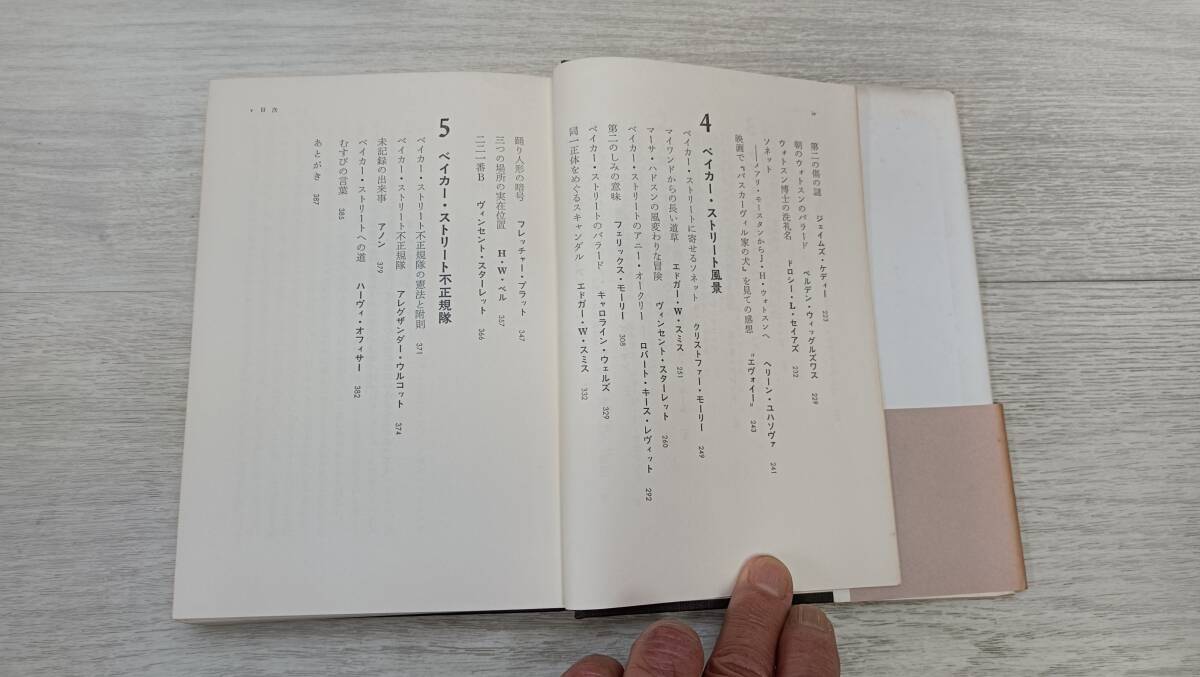 第二の傷の謎　ジェイムズ・ケディー　223
朝のウォトスンのバラード　ベルデン・ウィッグルズワス　229
ウォトスン博士の洗礼名　ドロシー・L・セイアズ　232
ソネット
――メアリ・モースタンからJ・H・ウォトスンへ　ヘリーン・ユハソヴァ　241
映画で『バスカーヴィル家の犬』を見ての感想　"エヴォイー"　243
4　ベイカー・ストリート風景
ベイカー・ストリートに寄せるソネット　クリストファー・モーリー　249
マイワンドからの長い道草　エドガー・W・スミス　251
マーサ・ハドスンの風変わりな冒険　ヴィンセント・スターレット　260
ベイカー・ストリートのアニー・オークリー　ロバート・キース・レヴィット　292
第二のしみの意味　フェリックス・モーリー　308
ベイカー・ストリートのバラード　キャロライン・ウェルズ　329
同一正体をめぐるスキャンダル　エドガー・W・スミス　332
v 目次
踊り人形の暗号　フレッチャー・プラット　347
三つの場所の実在位置　H・W・ベル　357
二二一番B　ヴィンセント・スターレット　366
5　ベイカー・ストリート不正規隊
ベイカー・ストリート不正規隊の憲法と附則　371
ベイカー・ストリート不正規隊　アレグザンダー・ウルコット　374
未記録の出来事　アノン　379
ベイカー・ストリートへの道　ハーヴィ・オフィサー　382
むすびの言葉　385
あとがき　387